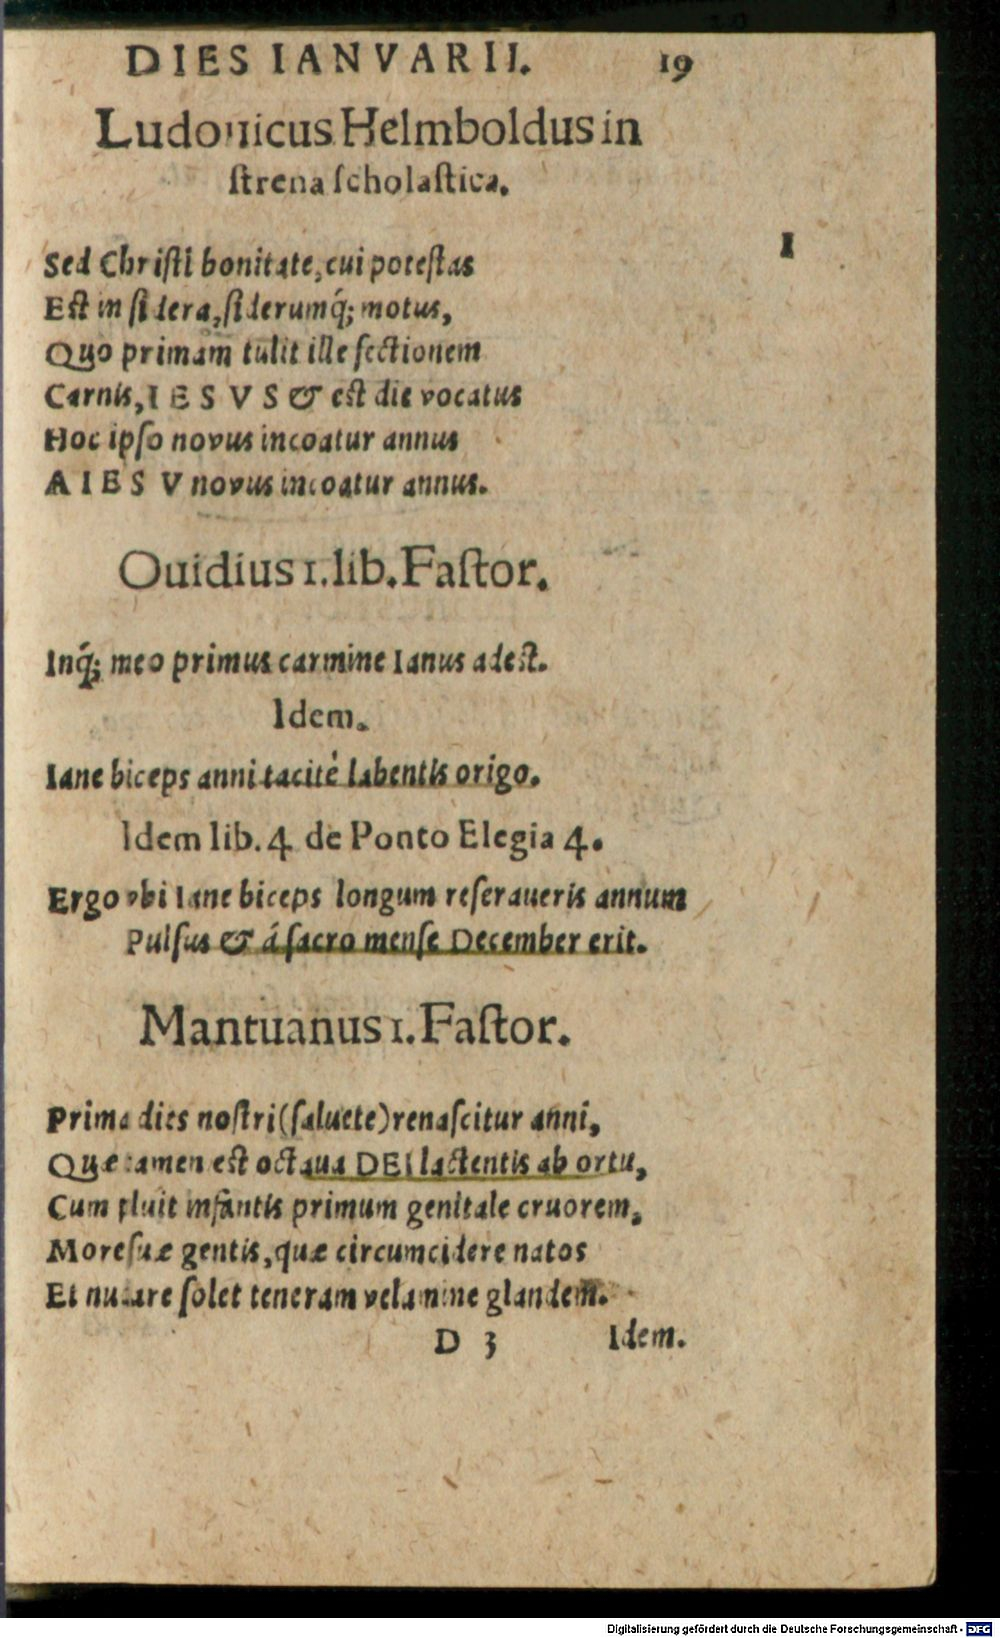 DIES IANVARII. 19
Ludouicus Helmboldus in
ſtrena ſcholaſtica.
I
Sed Chriſti bonitate, cui poteſtas
Eſt in ſidera, ſiderumq́; motus,
Quo primam tulit ille ſectionem
Carnis, IESVS & eſt die vocatus
Hoc ipſo novus incoatur annus
A IESV novus incoatur annus.
Ouidius 1. lib. Faſtor.
Inq́; meo primus carmine Ianus adeſt.
Idem.
Iane biceps anni tacitè labentis origo.
Idem lib. 4 de Ponto Elegia 4.
Ergo vbi Iane biceps longum reſeraueris annum
Pulſus & á ſacro menſe December erit.
Mantuanus 1. Faſtor.
Prima dies noſtri (ſaluete) renaſcitur anni,
Quæ tamen eſt octaua DEI lactentis ab ortu,
Cum fluit infantis primum genitale cruorem,
More ſuæ gentis, quæ circumcidere natos
Et nudare ſolet teneram velamine glandem.
D 3 Idem.
Digitalisierung gefördert durch die Deutsche Forschungsgemeinschaft - DFG